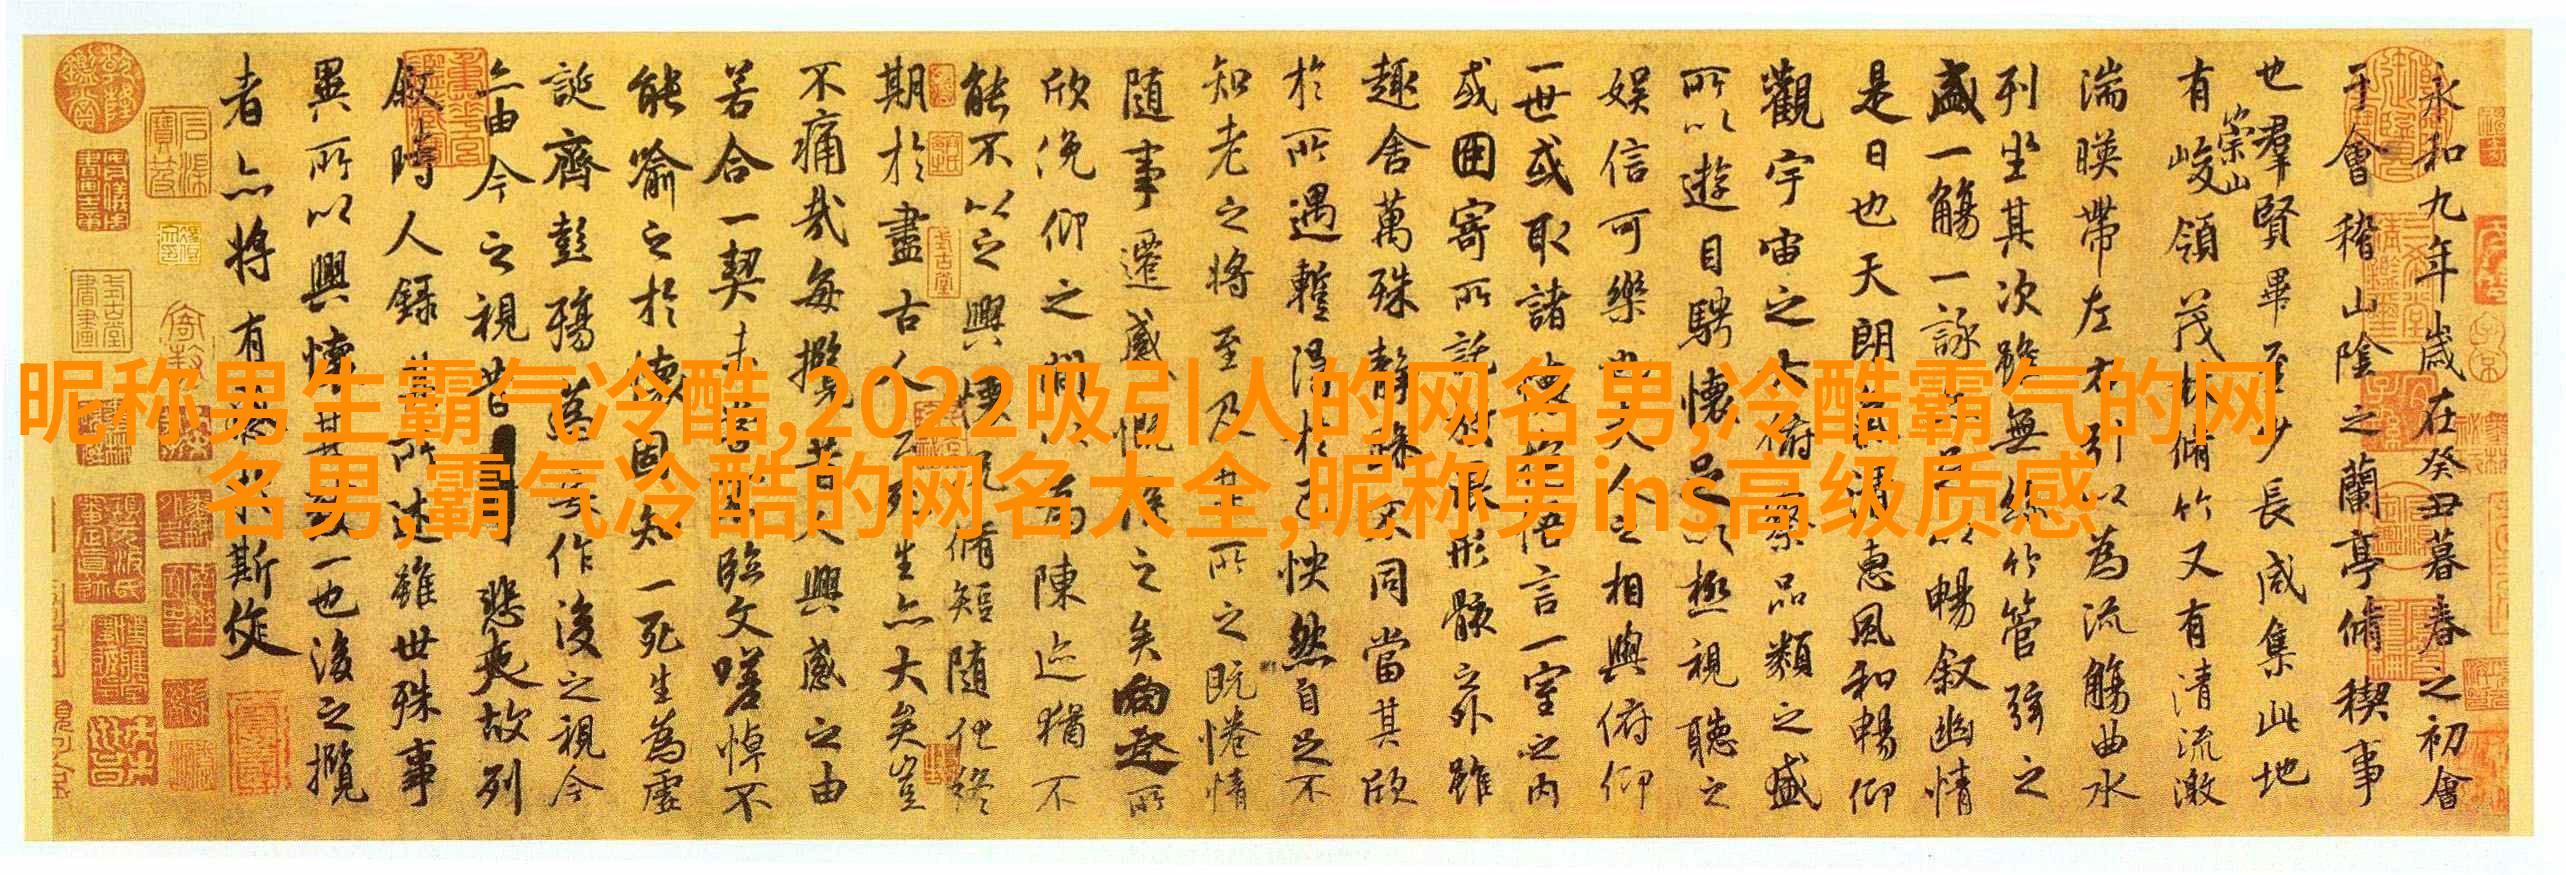 永和九年歲在癸丑暮春之初會
于會稽山陰之蘭亭脩稧事
也羣賢畢至少長咸集此地
有崇山峻領茂林脩竹又有清流激
湍暎帶左右引以為流觴曲水
列坐其次雖無絲竹管弦之
盛一觴一詠亦足以暢叙幽情
是日也天朗氣清惠風和暢仰
觀宇宙之大俯察品類之盛
所以遊目騁懷足以極視聽之
娛信可樂也夫人之相與俯仰
一世或取諸懷抱悟言一室之內
或因寄所託放浪形骸之外雖
趣舍萬殊靜躁不同當其欣
於所遇蹔得於己怏然自足不
知老之將至及其所之既惓情
隨事遷感慨係之矣向之所
欣俛仰之閒以為陳迹猶不
能不以之興懷況脩短隨化終
期於盡古人云死生亦大矣豈
不痛哉每攬昔人興感之由
若合一契未嘗不臨文嗟悼不
能喻之於懷固知一死生為虛
誕齊彭殤為妄作後之視今
亦由今之視昔悲夫故列
叙時人錄其所述雖世殊事
異所以興懷其致一也後之攬
者亦將有感於斯文
昵称男生霸气冷酷,2022吸引人的网名男,冷酷霸气的网
名男,霸气冷酷的网名大全,昵称男ins高级质感